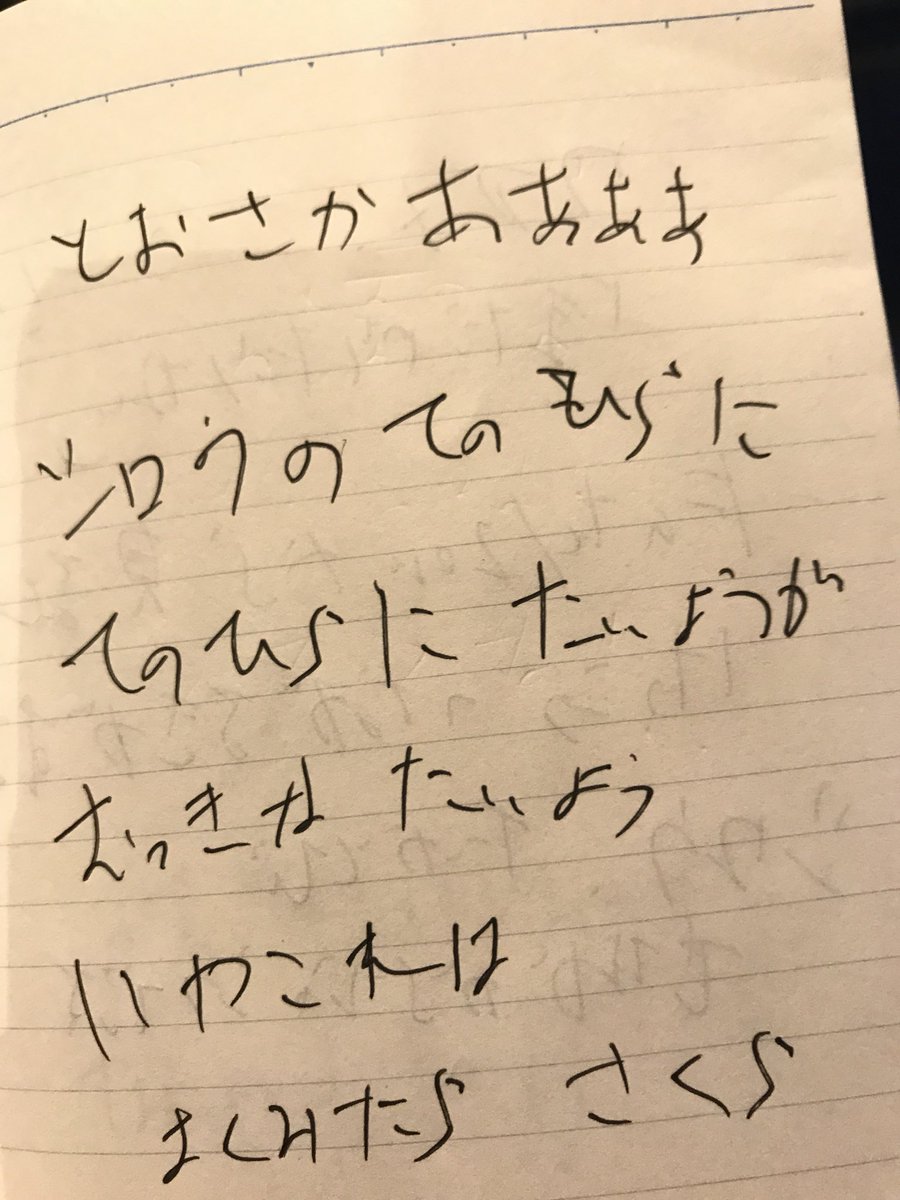 とおさか ああぁぁ
ジロウの てのひらに
てのひらに たいようが
おっきな たいよう
いやこれは
よくみたら さくら